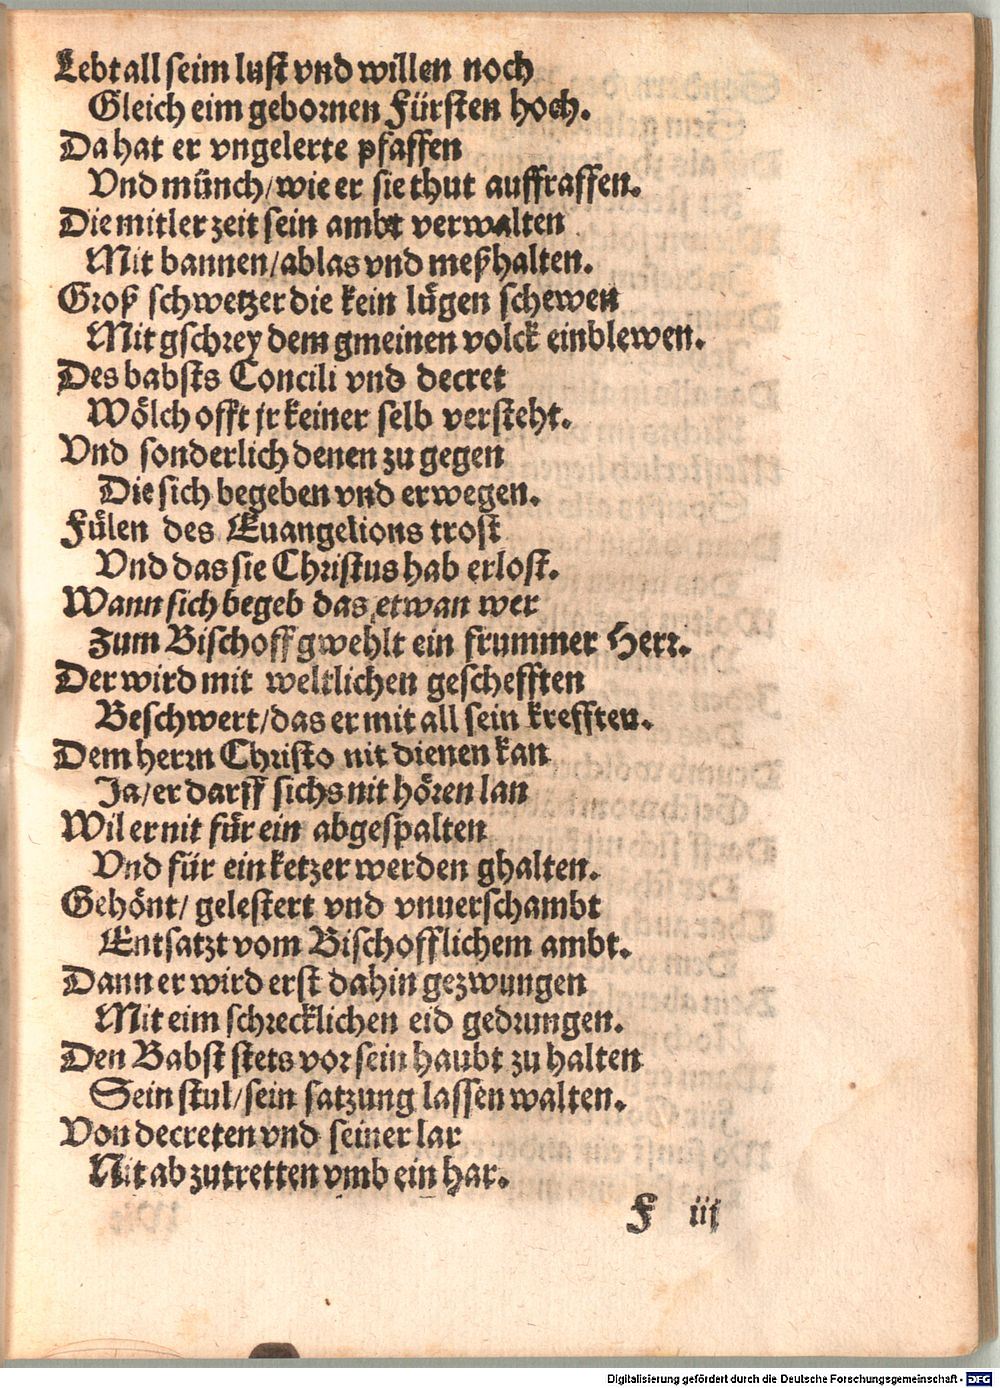 Lebt all seim lust vnd willen noch
Gleich eim gebornen Fürsten hoch.
Da hat er vngelerte pfaffen
Vnd münch/wie er sie thut auffraffen.
Die mitler zeit sein ambt verwalten
Mit bannen/ablas vnd meßhalten.
Groß schwetzer die kein lügen schewen
Mit gschrey dem gmeinen volck einblewen.
Des babsts Concili vnd decret
Wölch offt jr keiner selb versteht.
Vnd sonderlich denen zu gegen
Die sich begeben vnd erwegen.
Fülen des Euangelions trost
Vnd das sie Christus hab erlost.
Wann sich begeb das etwan wer
Zum Bischoff gwehlt ein frummer Herr.
Der wird mit weltlichen geschefften
Beschwert/das er mit all sein krefften.
Dem herrn Christo nit dienen kan
Ja/er darff sichs nit hören lan
Wil er nit für ein abgespalten
Vnd für ein ketzer werden ghalten.
Gehönt/ gelestert vnd vnuerschambt
Entsatzt vom Bischofflichem ambt.
Dann er wird erst dahin gezwungen
Mit eim schrecklichen eid gedrungen.
Den Babst stets vor sein haubt zu halten
Sein stul/sein satzung lassen walten.
Von decreten vnd seiner lar
Nit ab zutretten vmb ein har.
F iij
Digitalisierung gefördert durch die Deutsche Forschungsgemeinschaft - DFG